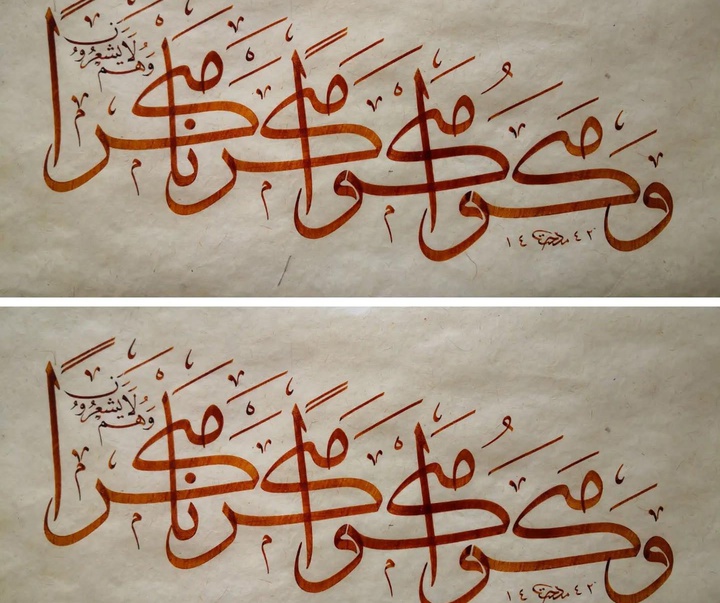 وَمَكَرُوا مَكْرًا وَمَكَرْنَا مَكْرًا
وَهُمْ لَا يَشْعُرُونَ
١٤ مدحت ٤٢
وَمَكَرُوا مَكْرًا وَمَكَرْنَا مَكْرًا
وَهُمْ لَا يَشْعُرُونَ
١٤ مدحت ٤٢